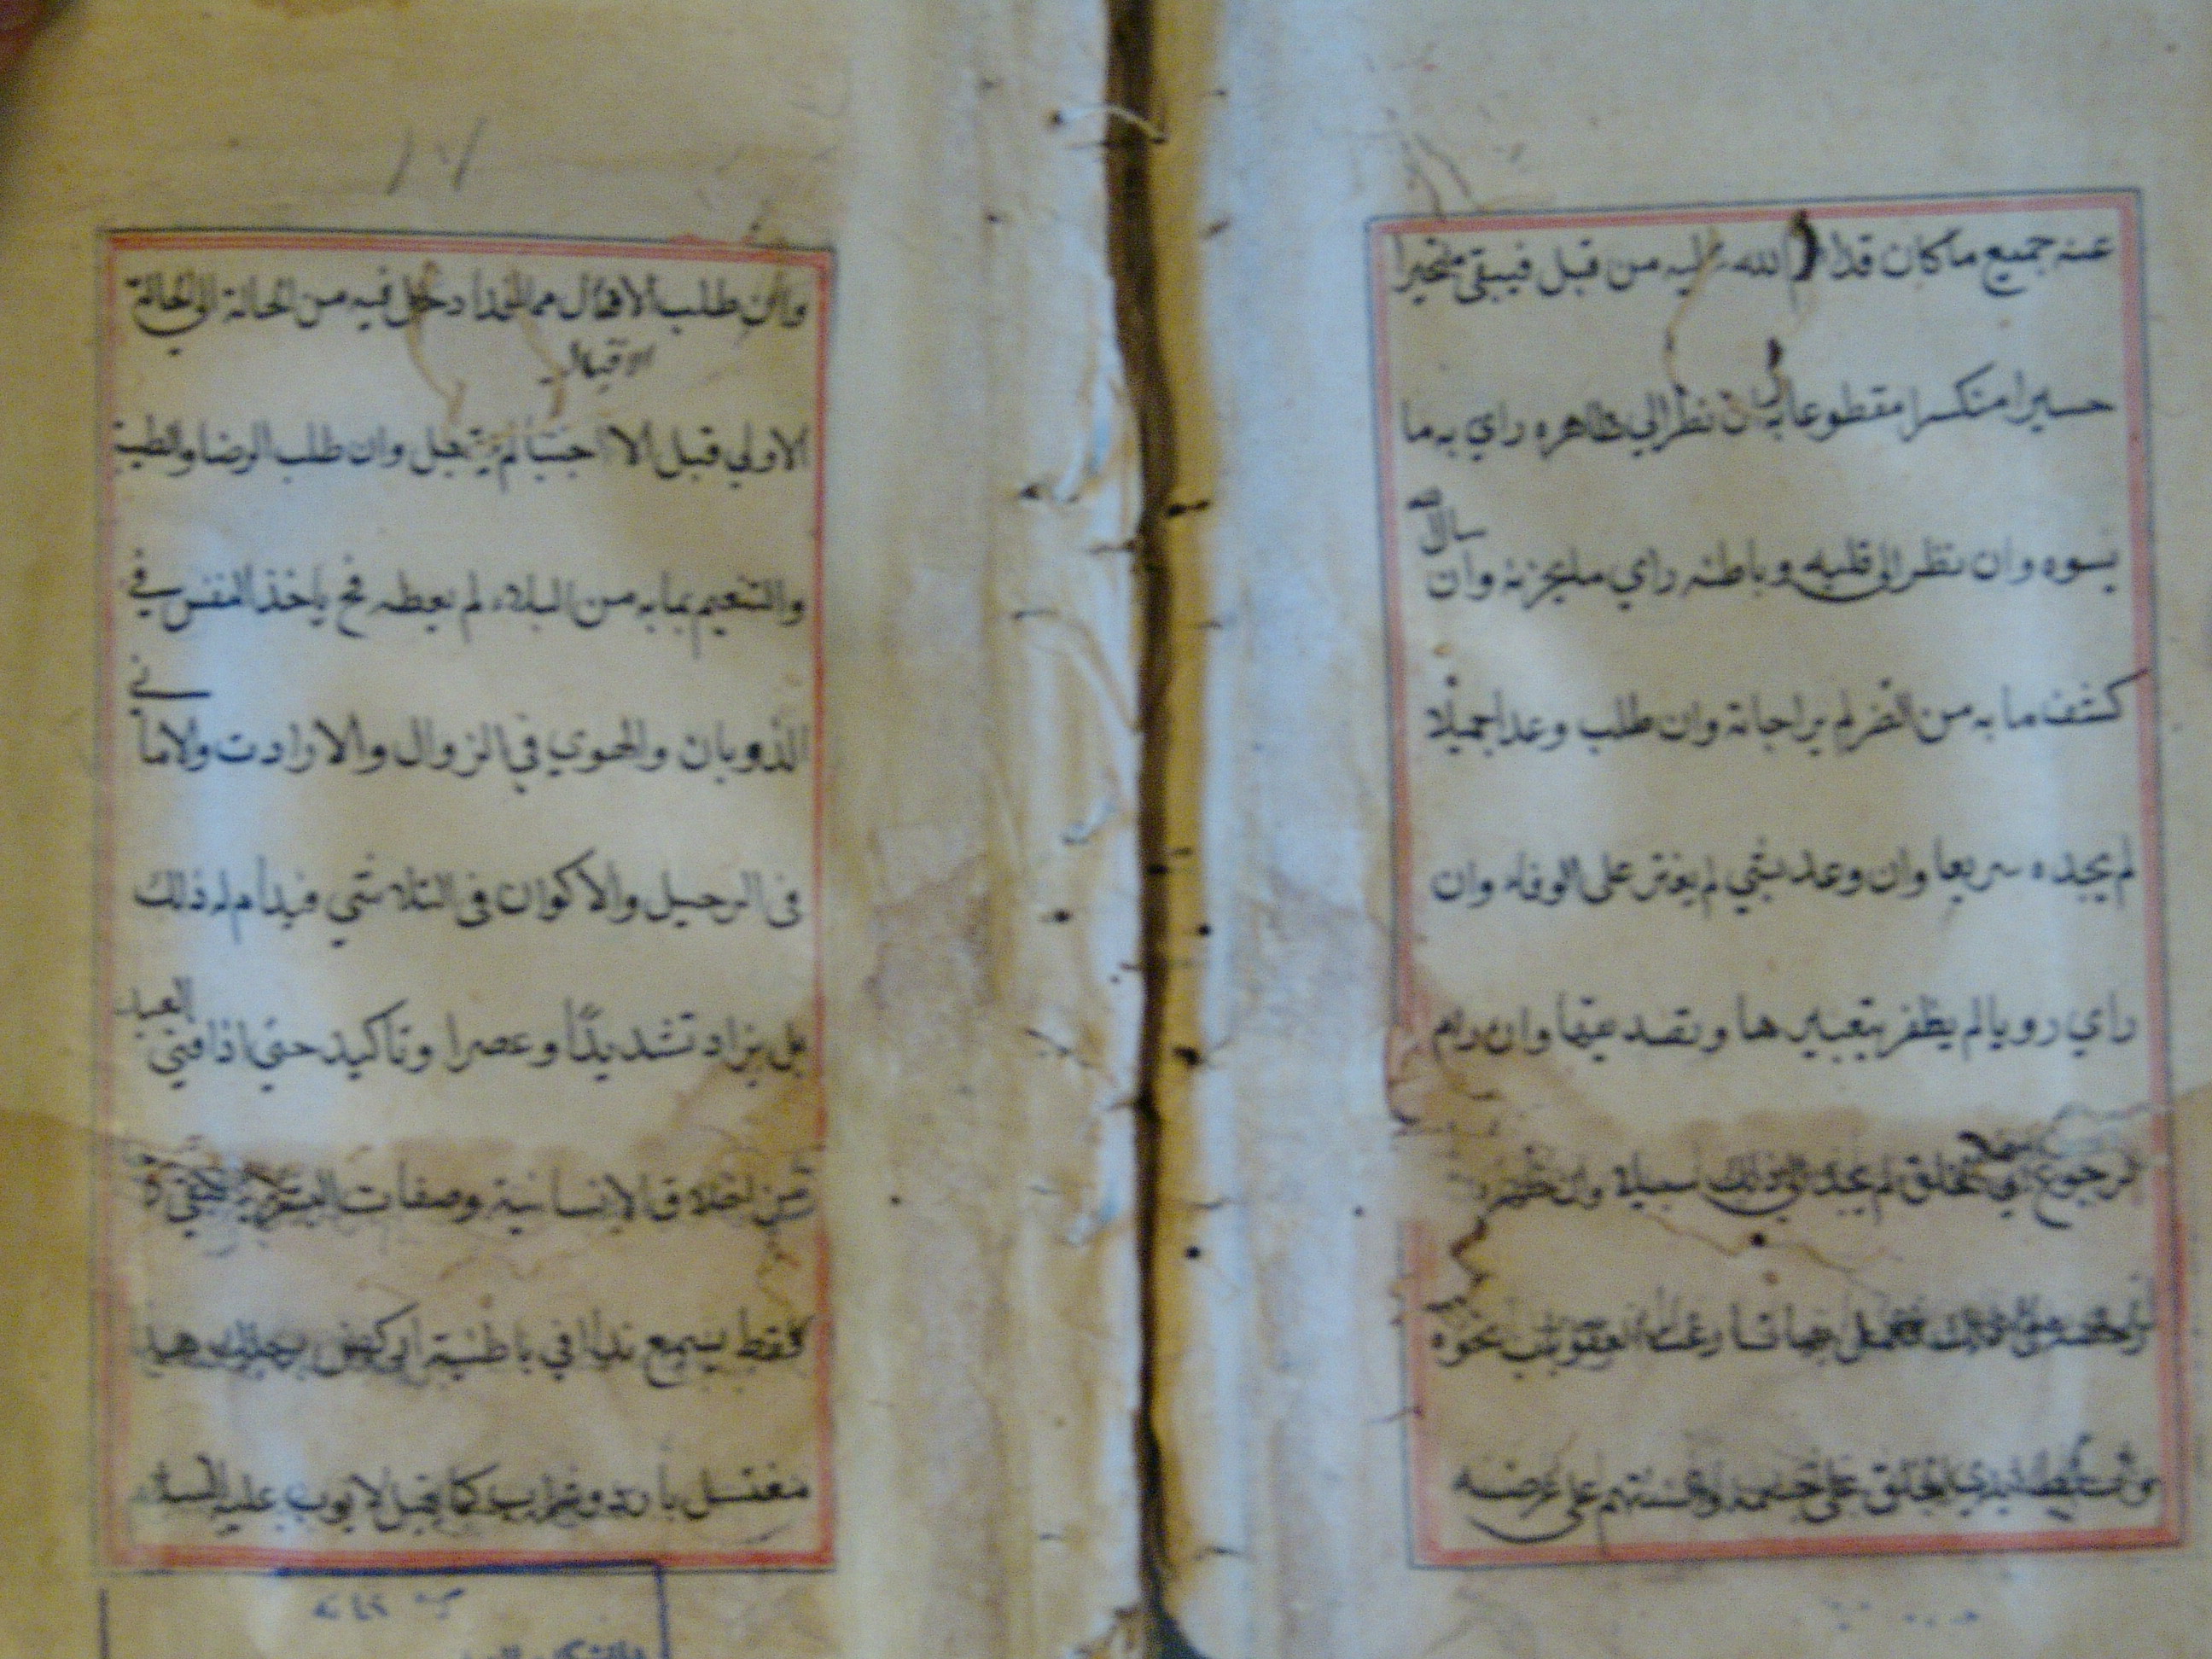 عنه جميع ما كان قدام الله إليه من قبل فيبقى متحيرا
حسيرا منكسرا مقطوعا به ان نظر الي ظاهره راي به ما
يسوه وان نظر الى قلبه وباطنه راي ما يحزنه وان سال الله
كشف ما به من الضر لم يرا جابة وان طلب وعدا جميلا
لم يجده سريعا وان وعد بشي لم يعثر على الوفاء وان
راي رويا لم يظفر بتعبيرها و تصديقها وان رام
الرجوع الي الخلق لم يجد الي ذلك سبيلا وان ظهر
ايدي الخلق على جسمه والسنتهم على عرضه
١٧
وان طلب الاقال مما قد ادخل فيه من الحالة الي الحالة
الاقيال
الاولي قبل الا اجتبا لم يقل وان طلب الرضا والطيبة
والتنعيم بما به من البلاء لم يعطه فح ياخذ النفس في
الذوبان والهوي في الزوال والارادت والاماني
في الرحيل والاكوان في التلاشي فيدام له ذلك
بل يزاد تشديدًا وعصرا وتاكيد حتي اذا فني العبد
من اخلاق الانسانية وصفات البشرية بقي
فقط يسمع ندا في باطنية اركض برجلك هذا
مغتسل بارد وشراب كما قيل لايوب عليه السلام